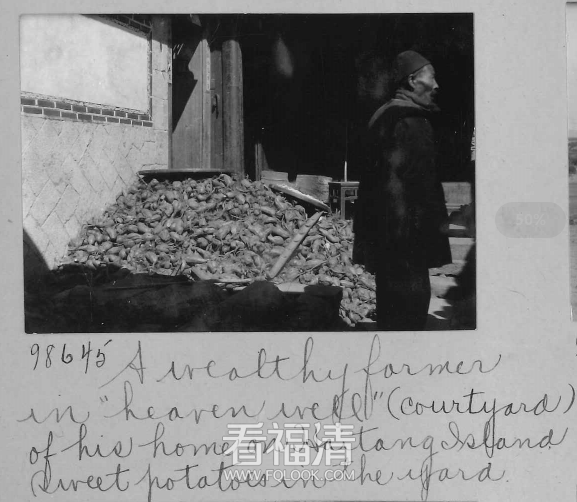 98645 A wealthy farmer
in "heaven well" (courtyard)
of his home on Haitang Island.
Sweet potatoes in the yard.
看福清
WWW.FQLOOK.COM
50%